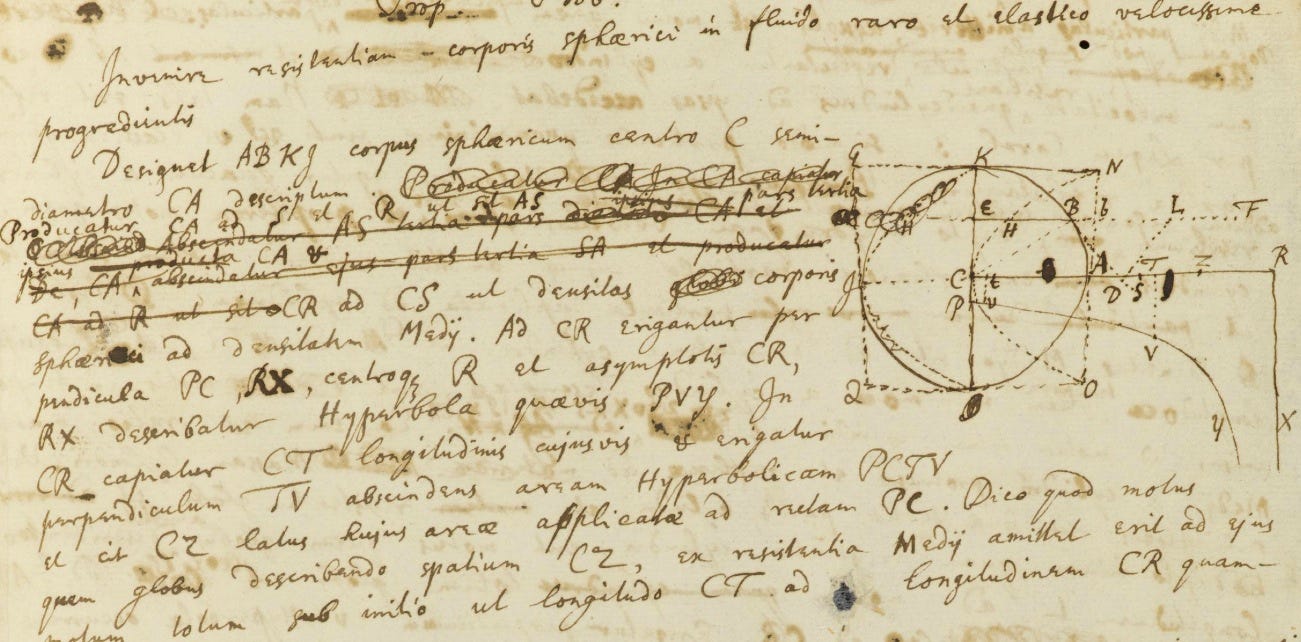 Prop.
Invenire resistentiam corporis sphærici in fluido raro et elastico velocissime
progredientis
Designet ABKI corpus sphæricum centro C semi-
diametro CA descriptum
Producatur CA in CA capiatur
Producatur CA ad S et R ut sit AS ipsius pars tertia
Abscindatur AS tertia pars CA et
ipsius producta CA &
CA, abscindatur ejus pars tertia SA et producatur
CA ad R ut sit CR ad CS ut densitas globi corporis
sphærici ad densitatem Medij. Ad CR erigantur per
pendicula PC, RX, centroq R et asymptotis CR,
RX describatur Hyperbola quævis PVY. In
CR capiatur CT longitudinis cujusvis & erigatur
perpendiculum TV abscindens aream Hyperbolicam PCTV
et sit CZ latus hujus areæ applicatæ ad rectam PC. Dico quod motus
quem globus describendo spatium CZ, ex resistentia Medij amittet erit ad ejus
motum totum sub initio ut longitudo CT ad longitudinem CR quam-
G K N
E H B b L F
I C t A T Z R
P u D S
V
Q O
Y X